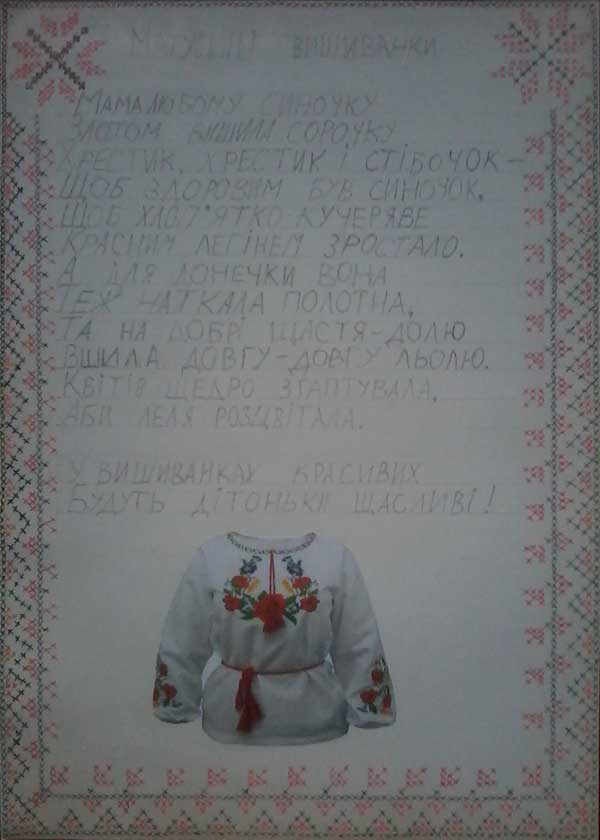 Матусині вишиванки
Мама любому синочку
Злотом вишила сорочку
Хрестик, хрестик і стібочок –
Щоб здоровим був синочок,
Щоб хлоп'ятко кучеряве
Красним легінем зростало.
А для донечки вона
Теж наткала полотна,
Та на добрі щастя-долю
Вшила довгу-довгу льолю.
Квітів щедро згаптувала,
Аби леля розцвітала.
У вишиванках красивих
Будуть дітоньки щасливі!